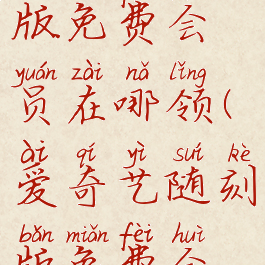 版免费会
yuán zài nǎ lǐng
员在哪领(
ài qí yì suí kè
爱奇艺随刻
bǎn miǎn fèi huì
版免费会